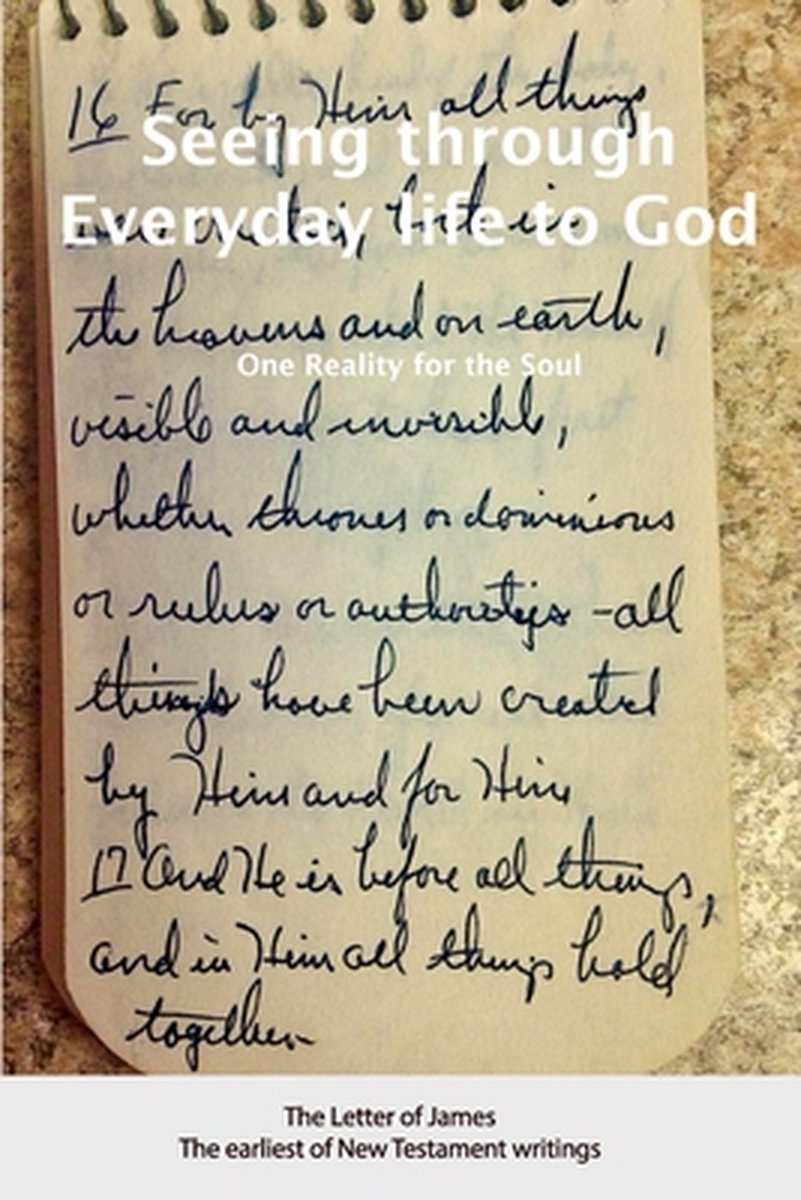 16 For by Him all things
Seeing through
were created, both in
Everyday life to God
the heavens and on earth,
One Reality for the Soul
visible and invisible,
whether thrones or dominions
or rulers or authorities -all
things have been created
by Him and for Him
17 And He is before all things,
and in Him all things hold
together.
The Letter of James
The earliest of New Testament writings